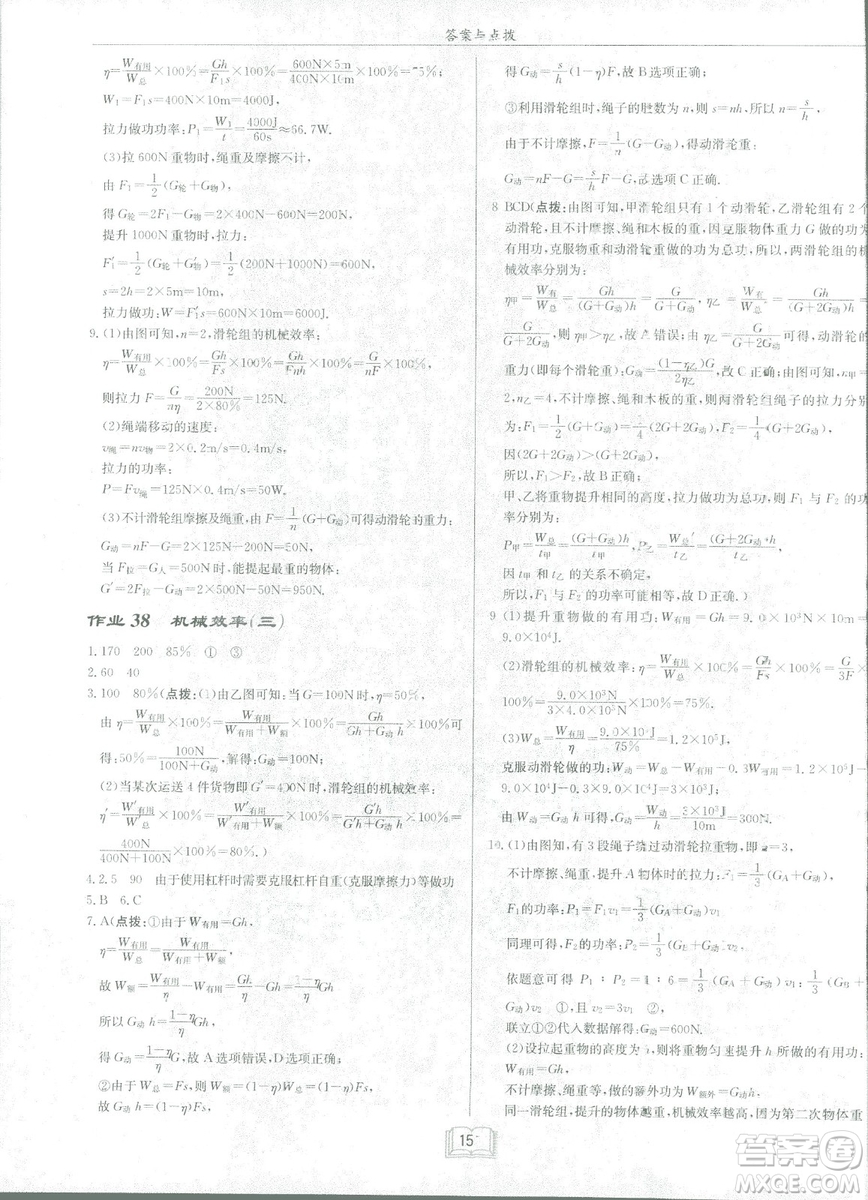 答案与点拨
η=W有用/W总×100%=Gh/Fs×100%=600N×5m/400N×10m×100%=75%
W₁=F₁s=400N×10m=4000J
拉力做功功率:P₁=W₁/t=4000J/60s≈66.7W.
(3)拉600N重物时,绳重及摩擦不计,
由F₁=1/2(G轮+G物)
得:G轮=2F₁-G物=2×400N-600N=200N
提升1000N重物时,拉力:
F₁′=1/2(G轮+G物)=1/2(200N+1000N)=600N,
s=2h=2×5m=10m,
拉力做功:W=F₁′s=600N×10m=6000J.
9.(1)由图可知,n=2,滑轮组的机械效率:
η=W有用/W总×100%=Gh/Fs×100%=Gh/Fnh×100%=G/nF×100%,
则拉力F=G/nη=200N/2×80%=125N.
(2)绳端移动的速度:
v绳=nv物=2×0.2m/s=0.4m/s,
拉力的功率:
P=Fv绳=125N×0.4m/s=50W.
(3)不计滑轮组摩擦及绳重,由F=1/n(G+G动)可得动滑轮的重力:
G动=nF-G=2×125N-200N=50N,
当F大=G人=500N时,能提起最重的物体:
G′=2F大-G动=2×500N-50N=950N.
作业38 机械效率(三)
1.170 200 85% ① ③
2.60 40
3.100 80%(点拨:(1)由乙图可知:当G=100N时,η=50%,
由η=W有用/W总×100%=W有用/W有用+W额×100%=Gh/Gh+G动h×100%可
得:50%=100N/100N+G动,解得:G动=100N;
(2)当某次运送4件货物即G′=400N时,滑轮组的机械效率:
η′=W′有用/W′总×100%=W′有用/W′有用+W′额×100%=G′h/G′h+G动h×100%=
400N/400N+100N×100%=80%.)
4.2.5 90 由于使用杠杆时需要克服杠杆自重(克服摩擦力)等做功
5.B 6.C
7.A(点拨:①由于W有用=Gh,
η=W有用/W总=W有用/W有用+W额
故W额=W有用/η-W有用=Gh/η-Gh=1-η/ηGh
所以G动h=1-η/ηGh
得G动=1-η/ηG,故A选项错误,D选项正确.
②由于W总=Fs,则W额=(1-η)W总=(1-η)Fs
故G动h=(1-η)Fs
得G动=s/h(1-η)F,故B选项正确;
③利用滑轮组时,绳子的股数为n,则s=nh,所以n=s/h,
由于不计摩擦,F=1/n(G+G动),故得动滑轮重,
G动=nF-G=s/hF-G,故选项C正确.
8 BCD(点拨:由图可知,甲滑轮组只有1个动滑轮,乙滑轮组有2个
动滑轮,且不计摩擦、绳和木板的重,因克服物体重力G做的功为
有用功,克服物重和动滑轮重做的功为总功,所以,两滑轮组的机
械效率分别为:
η甲=W有/W总=Gh/(G+G动)h=G/G+G动,η乙=W有/W总′=Gh/(G+2G动)
G/G+2G动,则η甲>η乙,故A错误;由η乙=G/G+2G动可得,动滑轮
重力(即每个滑轮重):G动=(1-η乙)G/2η乙,故C正确;由图知n甲=
2,n乙=4,不计摩擦、绳和木板的重,两滑轮组绳子的拉力分别
为:F₁=1/2(G+G动)=1/4(2G+2G动),F₂=1/4(G+2G动),
因(2G+2G动)>(G+2G动),
所以,F₁>F₂,故B正确;
甲、乙将重物提升相同的高度,拉力做功为总功,则F₁与F₂的功
率分别为:
P甲=W总/t甲=(G+G动)h/t甲,P乙=W总′/t乙=(G+2G动)h/t乙,
因t甲与t乙的关系不确定,
所以,P甲可能小于P乙,故D正确.)
9 (1)提升重物做的有用功:W有用=Gh=9.0×10³N×10m=
9.0×10⁴J.
(2)滑轮组的机械效率:η=W有用/W总×100%=Gh/Fs×100%=G/3F×
100%=9.0×10³N/3×4.0×10³N×100%=75%.
(3)W总=W有用/η=9.0×10⁴J/75%=1.2×10⁵J,
克服动滑轮做的功:W动=W总-W有用-W额=1.2×10⁵J-
9.0×10⁴J-3.9×10³J...
由W动=G动h得,G动=W动/h=/10m=300N.
10.(1)由图知,有3段绳子绕过动滑轮拉重物,即n=3,
不计绳重、摩擦,提升A物体时的拉力:F₁=1/3(GA+G动)
F₁的功率:P₁=W/t=F₁s/t=F₁v₁=1/3(GA+G动)v₁
同理可得,F₂的功率:P₂=1/3(GB+G动)v₂
依题意可得P₁∶P₂=1∶6=1/3(GA+G动)v₁∶1/3(GB+
G动)v₂ ① ②
联立①②代入数据解得:G动=600N.
(2)设拉起重物的高度为h,将重物匀速提升h所做的有用功:
W有用=Gh,
不计摩擦、绳重,做的额外功为W额外=G动h,
同一滑轮组,提升的物体越重,机械效率越高,因为第二次物体重
15
答案圈
MXQE.COM